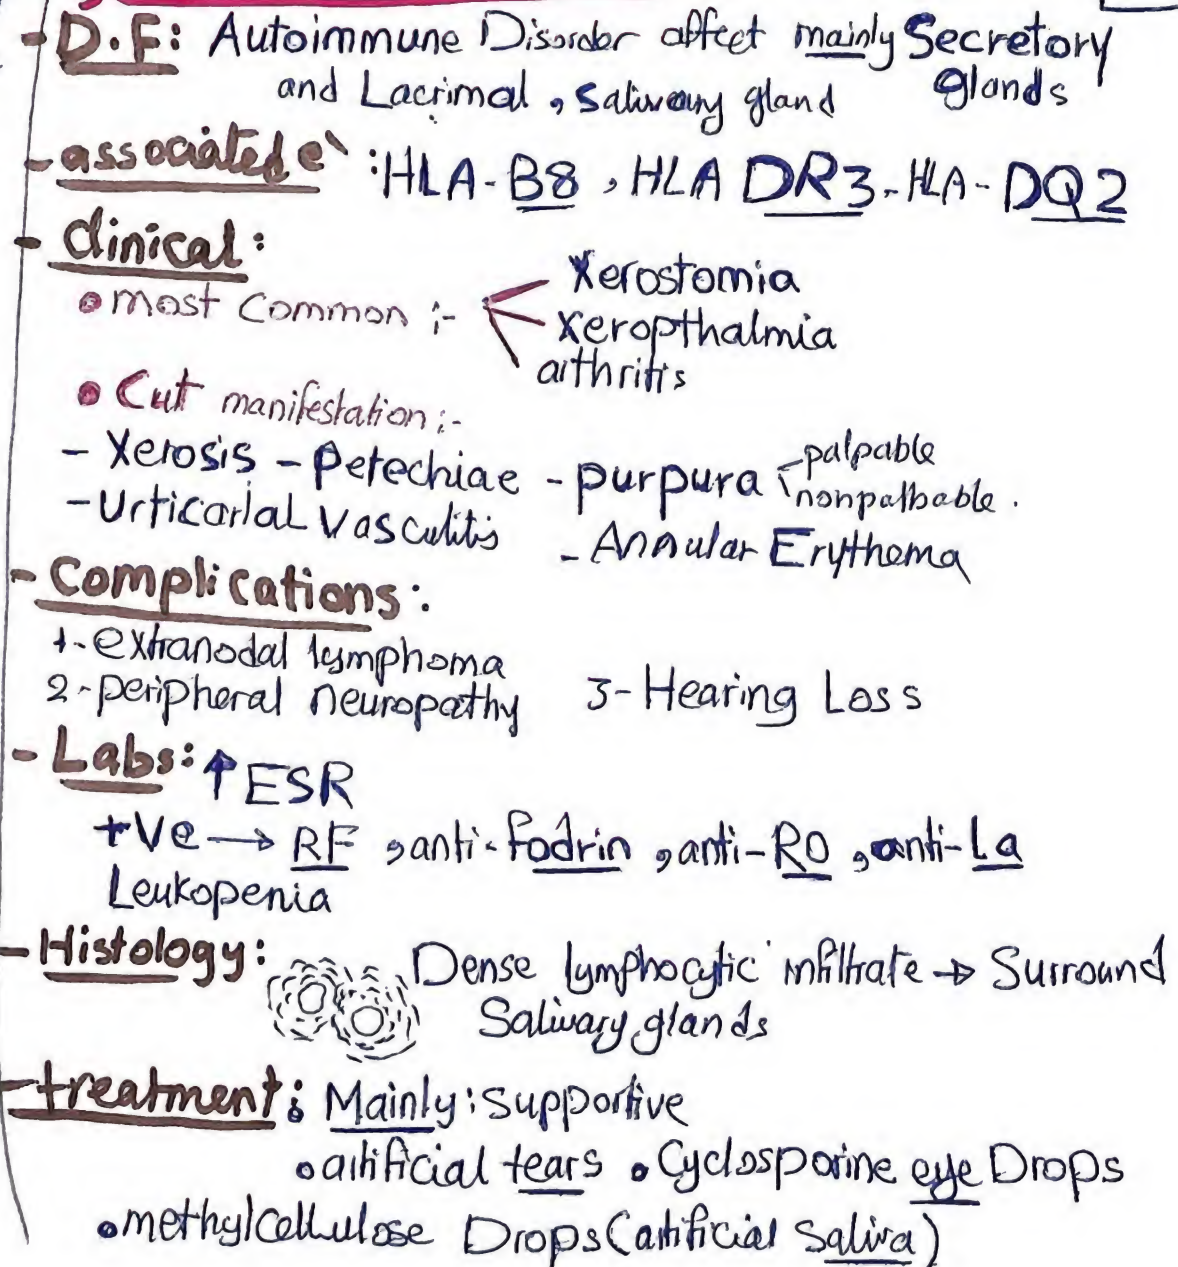 - D.F: Autoimmune Disorder affect mainly Secretory glands
and Lacrimal, Salivary gland
- associated e` : HLA-B8, HLA DR3 - HLA-DQ2
- Clinical:
• most Common :- Xerostomia
Xeropthalmia
arthritis
• Cut manifestation :-
- Xerosis - Petechiae - purpura palpable
nonpalbable.
- Urticarial Vasculitis - Annular Erythema
- Complications:
1- extranodal lymphoma
2- peripheral neuropathy 3- Hearing Loss
- Labs: ↑ ESR
+Ve → RF, anti-fodrin, anti-RO, anti-La
Leukopenia
- Histology: Dense lymphocytic infiltrate → Surround
Salivary glands
- treatment: Mainly: Supportive
• artificial tears • Cyclosporine eye Drops
• methylcellulose Drops (artificial Saliva)